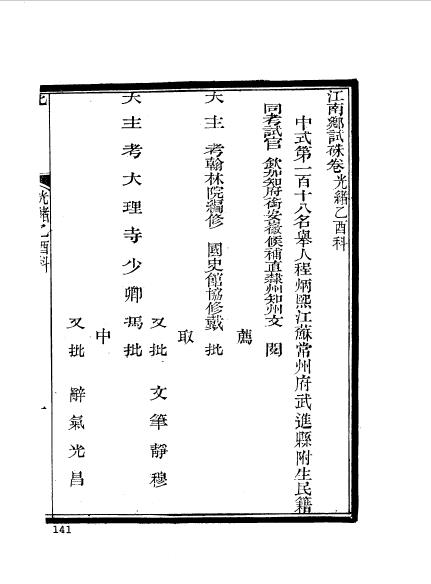 江南鄉試硃卷 光緒乙酉科
中式第一百十八名舉人程炳熙江蘇常州府武進縣附生民籍
同考試官 欽加知府銜安徽候補直隸州知州文 閱
薦
大主 考翰林院編修 國史館協修戴 批
取
又批 文筆靜穆
大主考大理寺少卿馮批
中
又批 辭氣光昌
光緒乙酉科
一
141